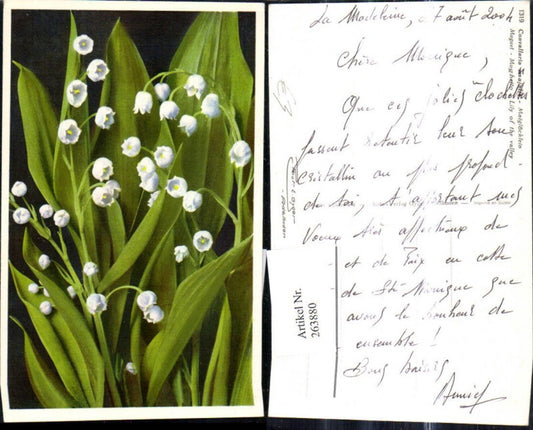 La Madeleine, 7 août 2004
Chère Monique,
Que ces jolies clochettes
fassent retentir leur son
cristallin au plus profond
de toi, t'apportant mes
Voeux très affectueux de
et de Paix en cette
de Ste Monique que
avons le bonheur de
ensemble !
Bons baisers
Annick
1319 Convallaria majalis - Maiglöckchen -
Muguet - Mughetto - Lily of the valley
Artikel Nr.
263880